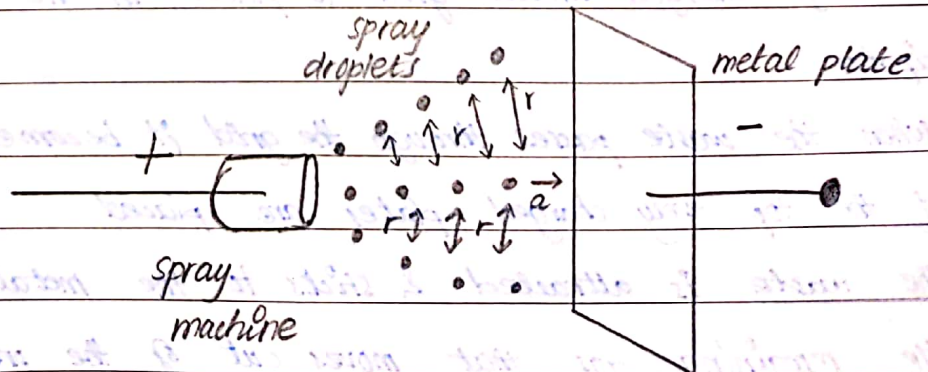 spray
droplets
metal plate.
r
r
+
−
r
r
a
spray
machine